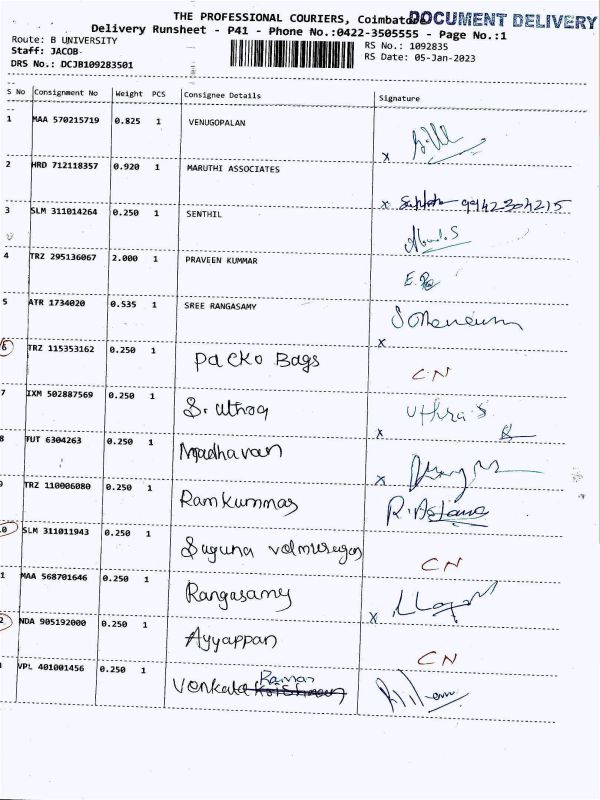 THE PROFESSIONAL COURIERS, Coimbatore
DOCUMENT DELIVERY
Delivery Runsheet - P41 - Phone No.:0422-3505555 - Page No.:1
Route: B UNIVERSITY
RS No.: 1092835
Staff: JACOB
RS Date: 05-Jan-2023
DRS No.: DCJB109283501
S No Consignment No Weight PCS Consignee Details Signature
1 MAA 570215719 0.825 1 VENUGOPALAN
x
2 HRD 712118357 0.920 1 MARUTHI ASSOCIATES
x 9942304215
3 SLM 311014264 0.250 1 SENTHIL
4 TRZ 295136067 2.000 1 PRAVEEN KUMMAR
5 ATR 1734020 0.535 1 SREE RANGASAMY
x
6 TRZ 115353162 0.250 1 Packo Bags CN
7 IXM 502887569 0.250 1 S. Uthra Uthra S
x
8 TUT 6304263 0.250 1 Madhavan
x
9 TRZ 110006080 0.250 1 Ramkummar
0 SLM 311011943 0.250 1 Suguna CN
1 MAA 568701646 0.250 1 Rangasamy
x
2 NDA 905192000 0.250 1 Ayyappan CN
VPL 401001456 0.250 1 Venkata Raman